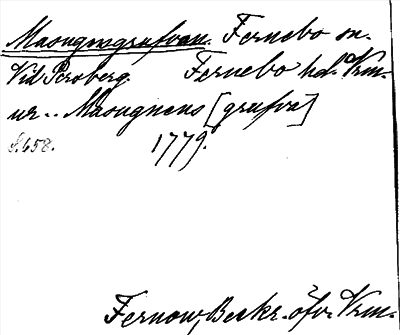 Masugnsgrufvan. Fernebo sn.
Vid Persberg. Fernebo hd. Vrm.
ur.. Masugnens [grufva]
s. 658. 1779.
Fernow, Beskr. öfv. Vrm.